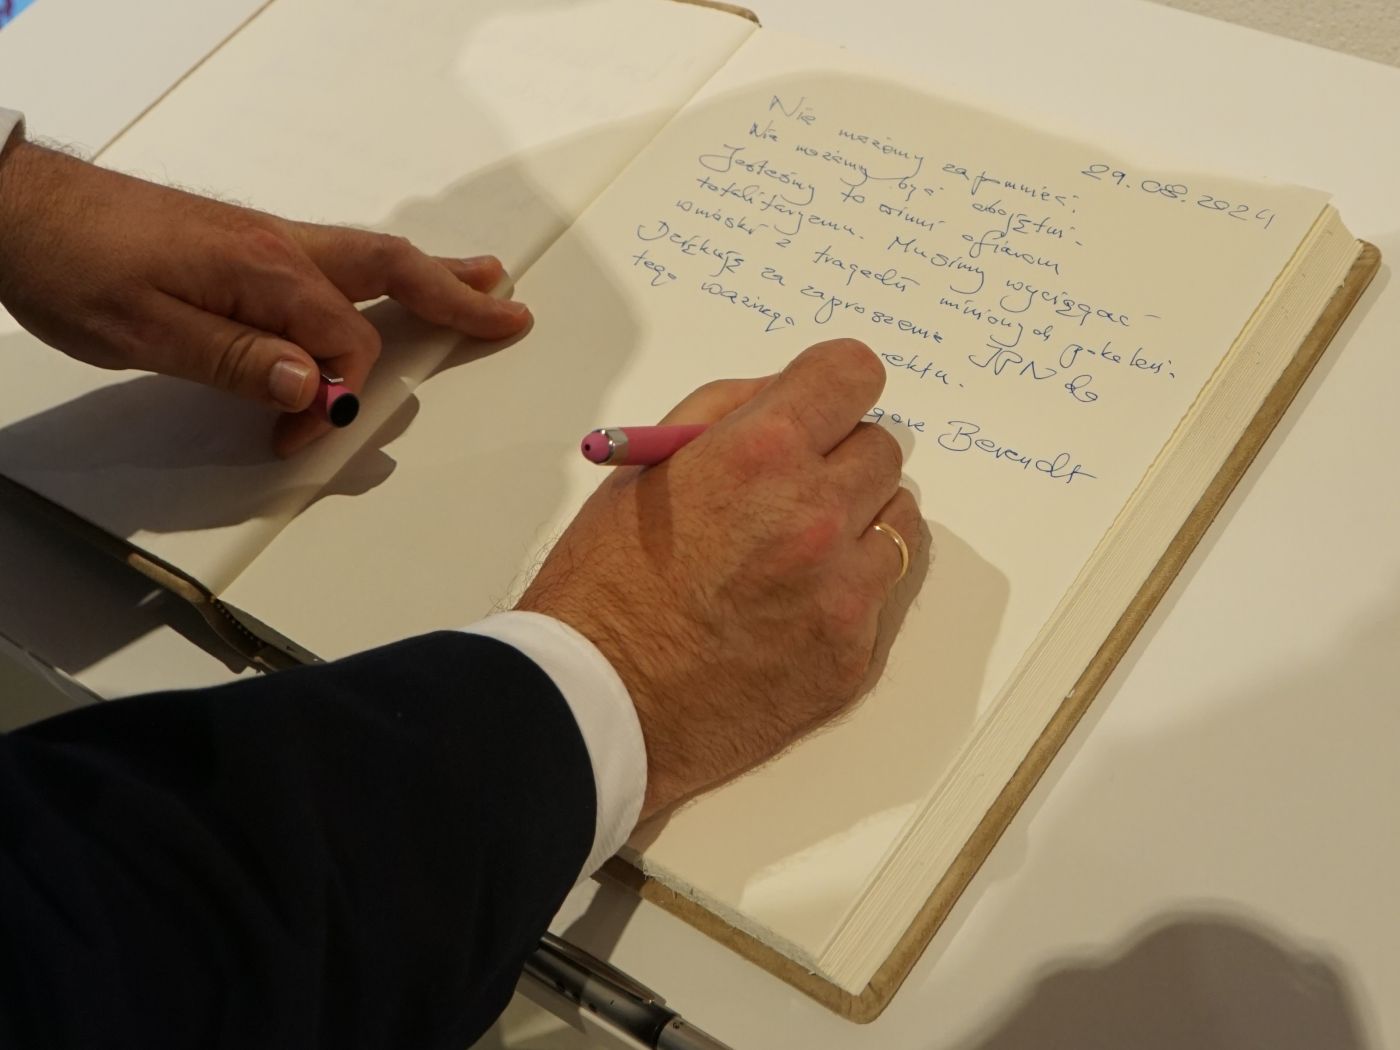 29.08.2024
Nie możemy zapomnieć.
Nie możemy być obojętni.
Jesteśmy to winni ofiarom
totalitaryzmu. Musimy wyciągać
wnioski z tragedii minionych pokoleń.
Dziękuję za zaproszenie IPN do
tego ważnego rektu.
Berendt